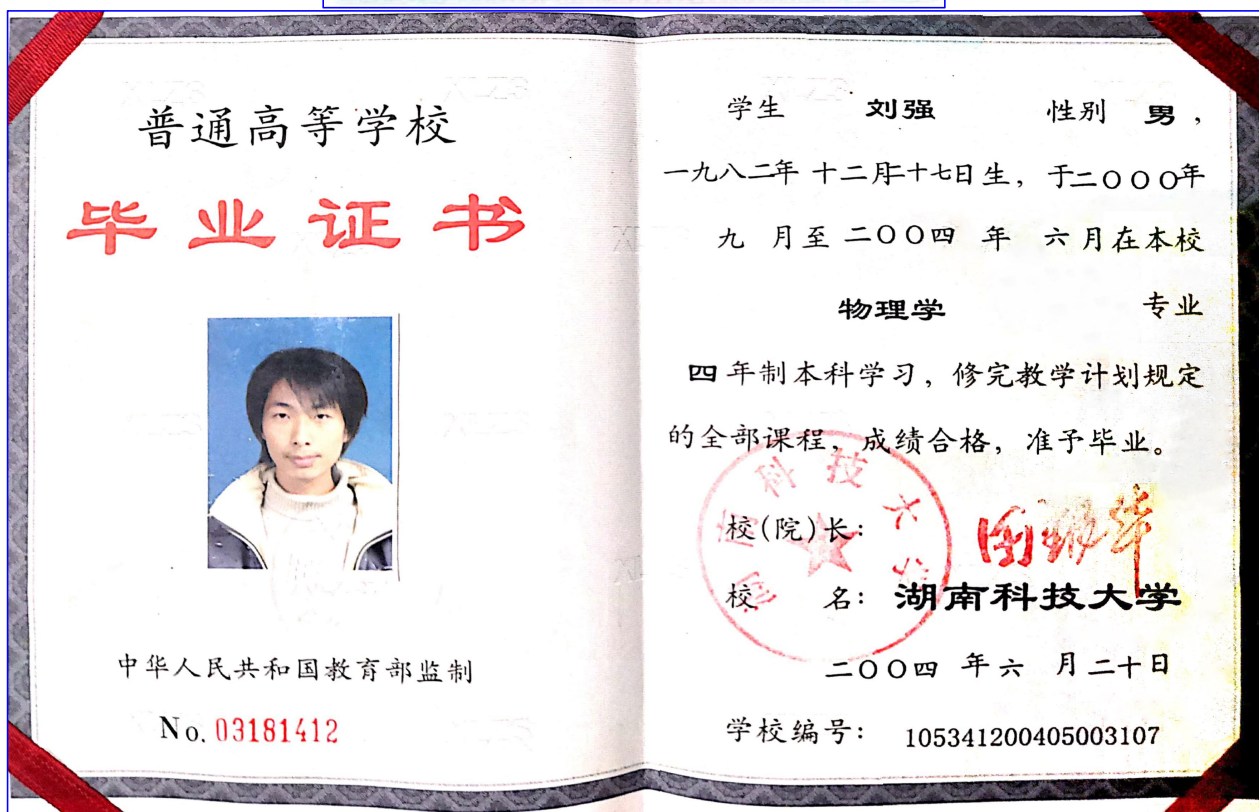 普通高等学校
毕业证书
中华人民共和国教育部监制
No. 03181412
学生 刘强 性别 男，
一九八二年 十二月二十七日生，于二〇〇〇年
九 月至 二〇〇四 年 六月在本校
物理学 专业
四年制本科学习，修完教学计划规定
的全部课程，成绩合格，准予毕业。
校(院)长：
校 名：湖南科技大学
二〇〇四 年六 月二十日
学校编号：105341200405003107
湖南科技大学